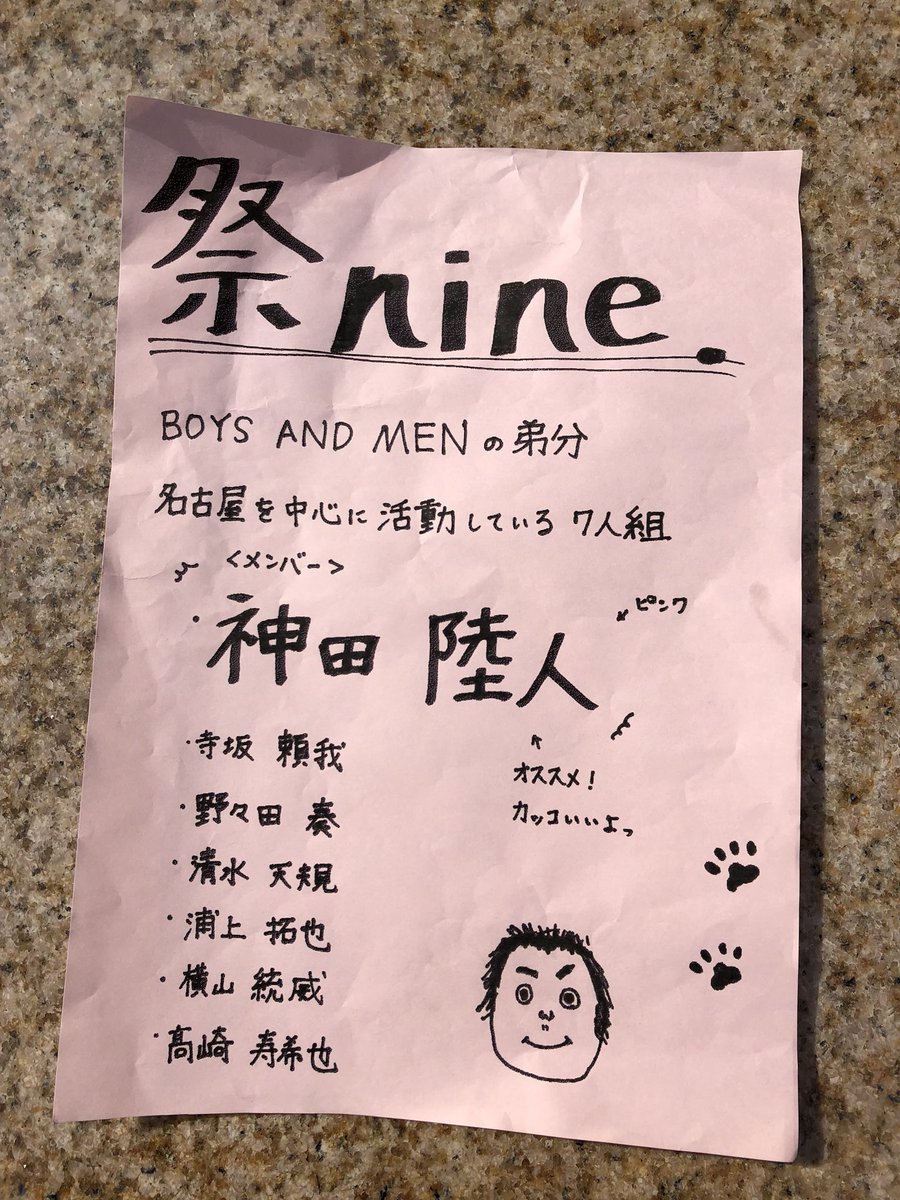 祭nine.
BOYS AND MENの弟分
名古屋を中心に活動している7人組
<メンバー>
・神田 陸人
ピンク
・寺坂 頼我
オススメ!
カッコいいよっ
・野々田 奏
・清水 天規
・浦上 拓也
・横山 統威
・高崎 寿希也